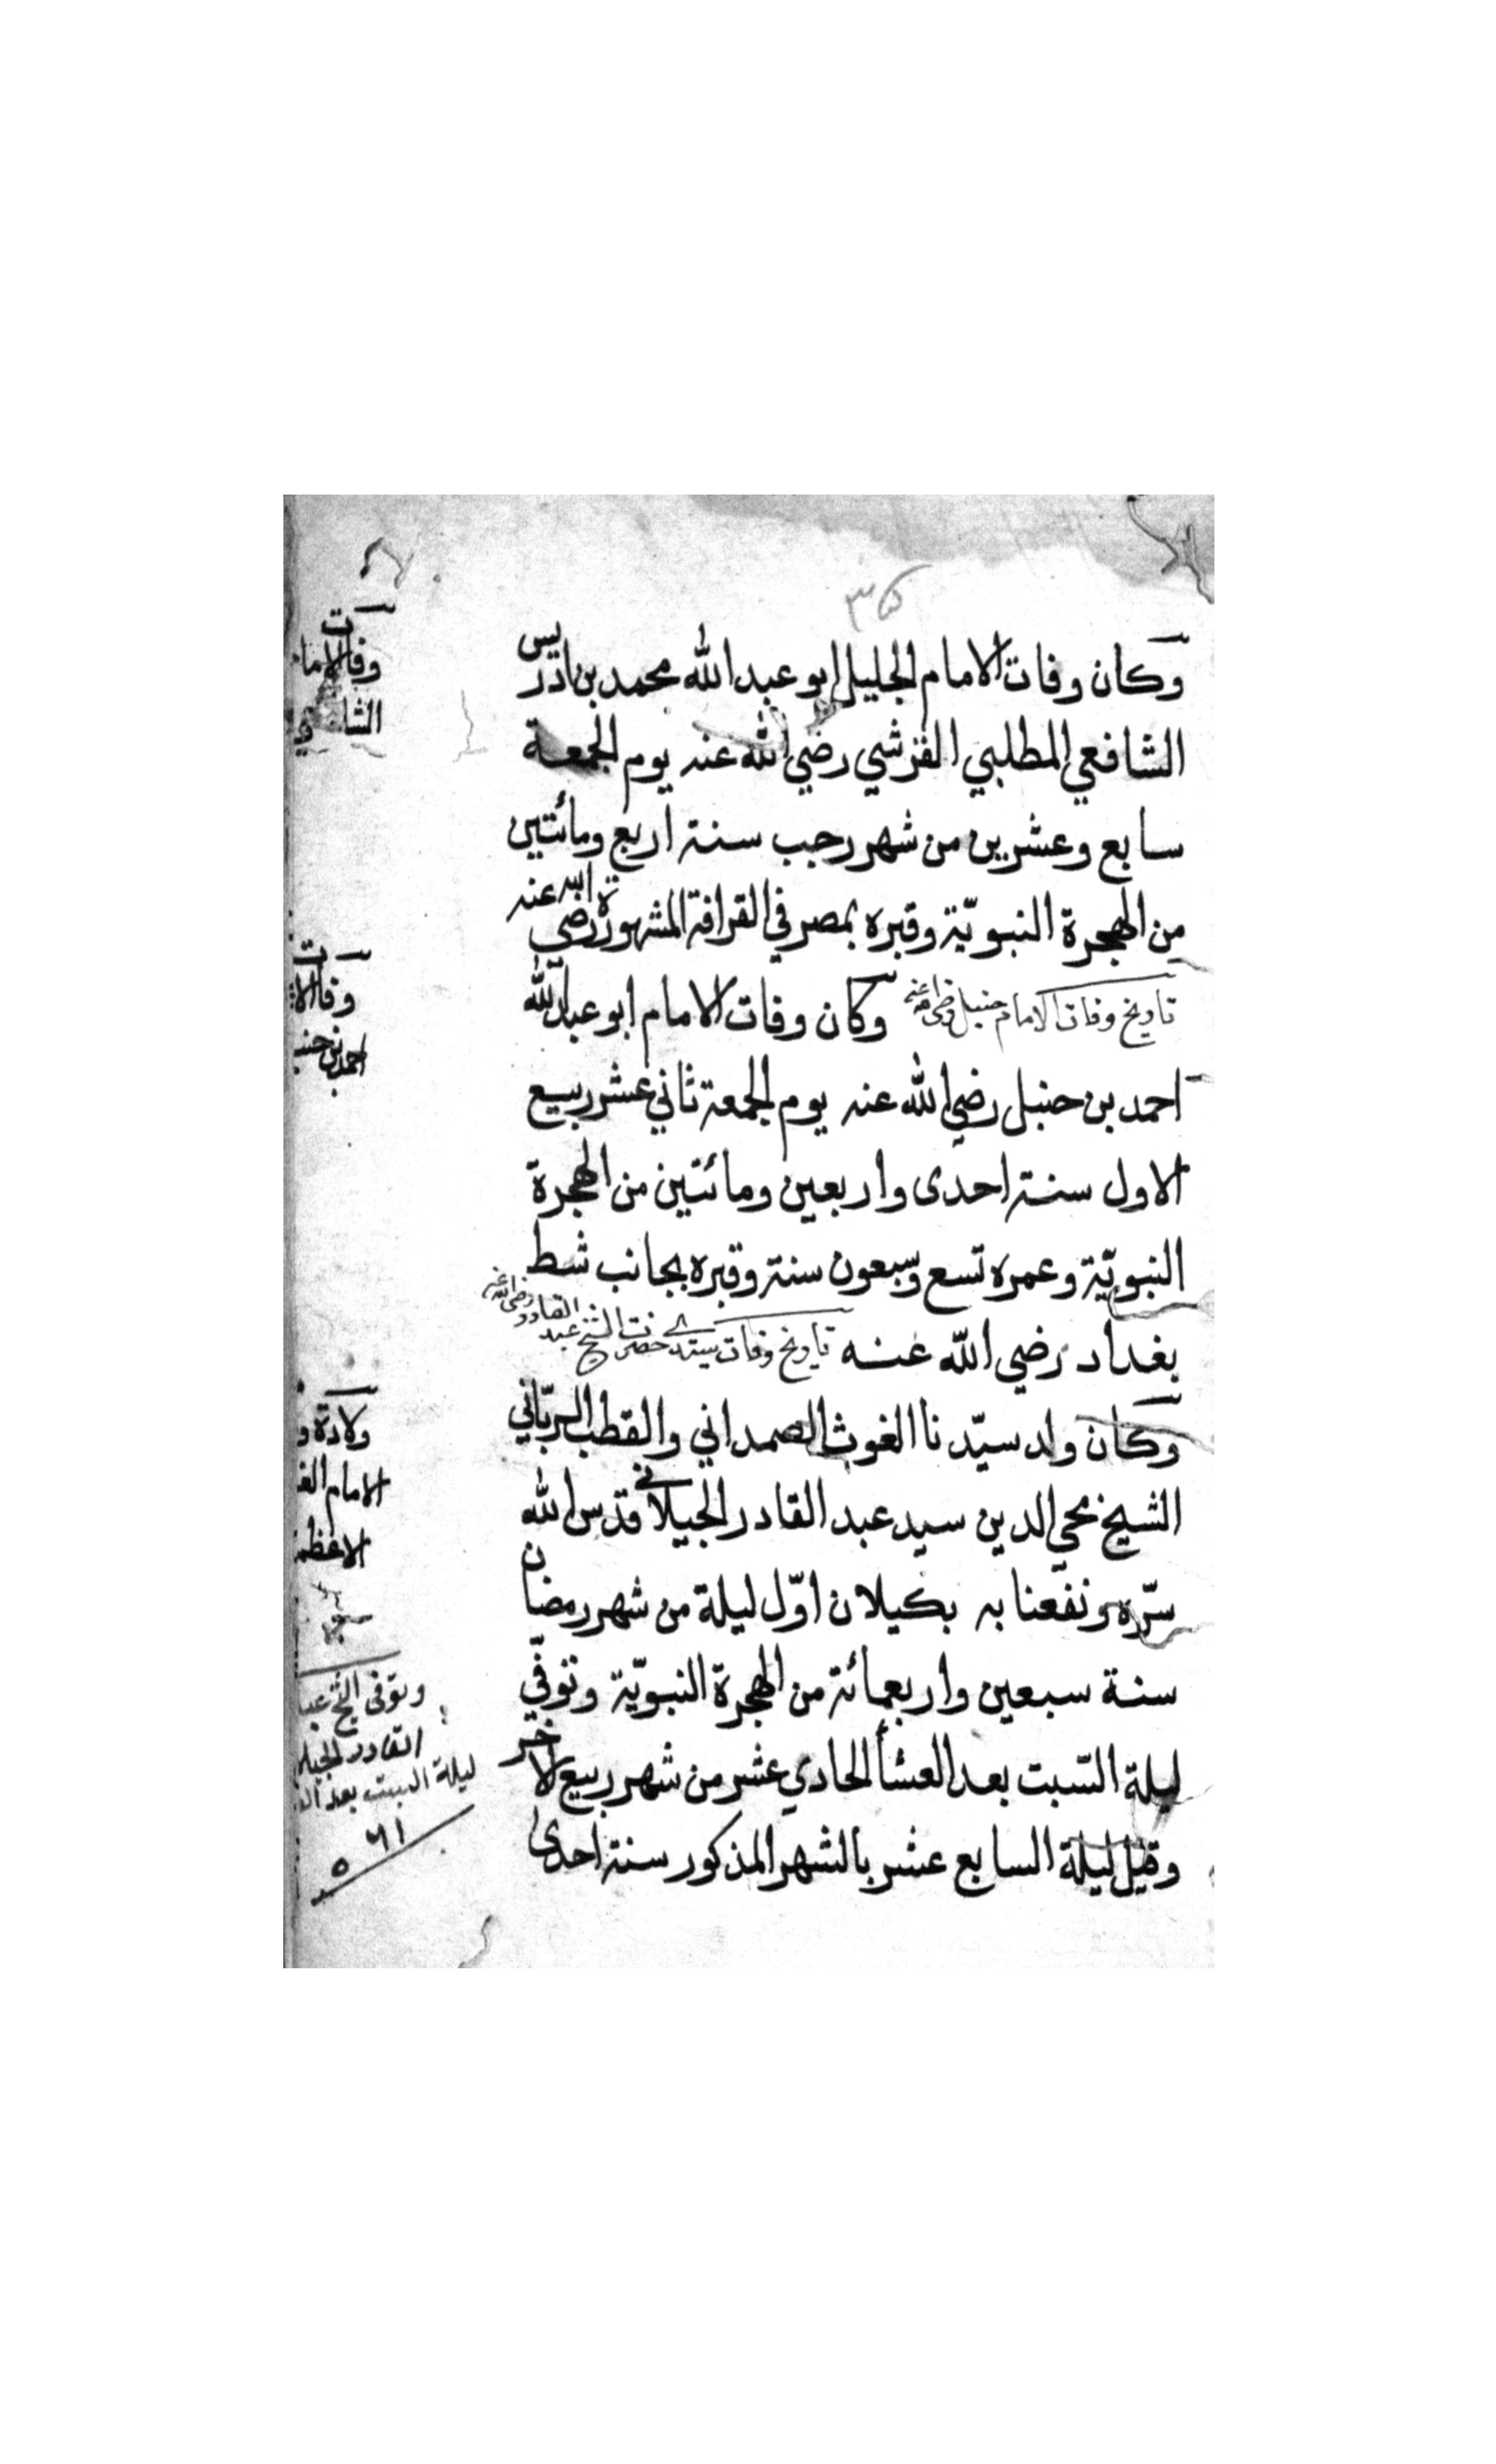 ٣٥
وكان وفات الامام الجليل ابو عبد الله محمد بن ادريس
الشافعي المطلبي القرشي رضي الله عنه يوم الجمعة
سابع وعشرين من شهر رجب سنة اربع ومائتين
من الهجرة النبويّة وقبره بمصر في القرافة المشهورة رضي الله عنه
تاريخ وفات الامام حنبل رضي الله عنه وكان وفات الامام ابو عبد الله
احمد بن حنبل رضي الله عنه يوم الجمعة ثاني عشر ربيع
الاول سنة احدى واربعين ومائتين من الهجرة
النبويّة وعمره تسع وسبعون سنة وقبره بجانب شط
بغداد رضي الله عنه تاريخ وفات سيدي حضرت الشيخ عبد القادر رضي الله عنه
وكان ولد سيّدنا الغوث الصمداني والقطب الربّاني
الشيخ محي الدين سيد عبد القادر الجيلاني قدس الله
سرّه ونفعنا به بكيلان اوّل ليلة من شهر رمضان
سنة سبعين واربعمائة من الهجرة النبويّة وتوفّي
ليلة السّبت بعد العشأ الحادي عشر من شهر ربيع الاخر
وقيل ليلة السابع عشر بالشهر المذكور سنة احدى
وفات الاما
الشا في
وفات الا
احمد بن حنب
ولادة و
الامام الغ
الاعظم
وتوفى الشيخ عبد
القادر الجيلا
ليلة السبت بعد ال
٥٦١